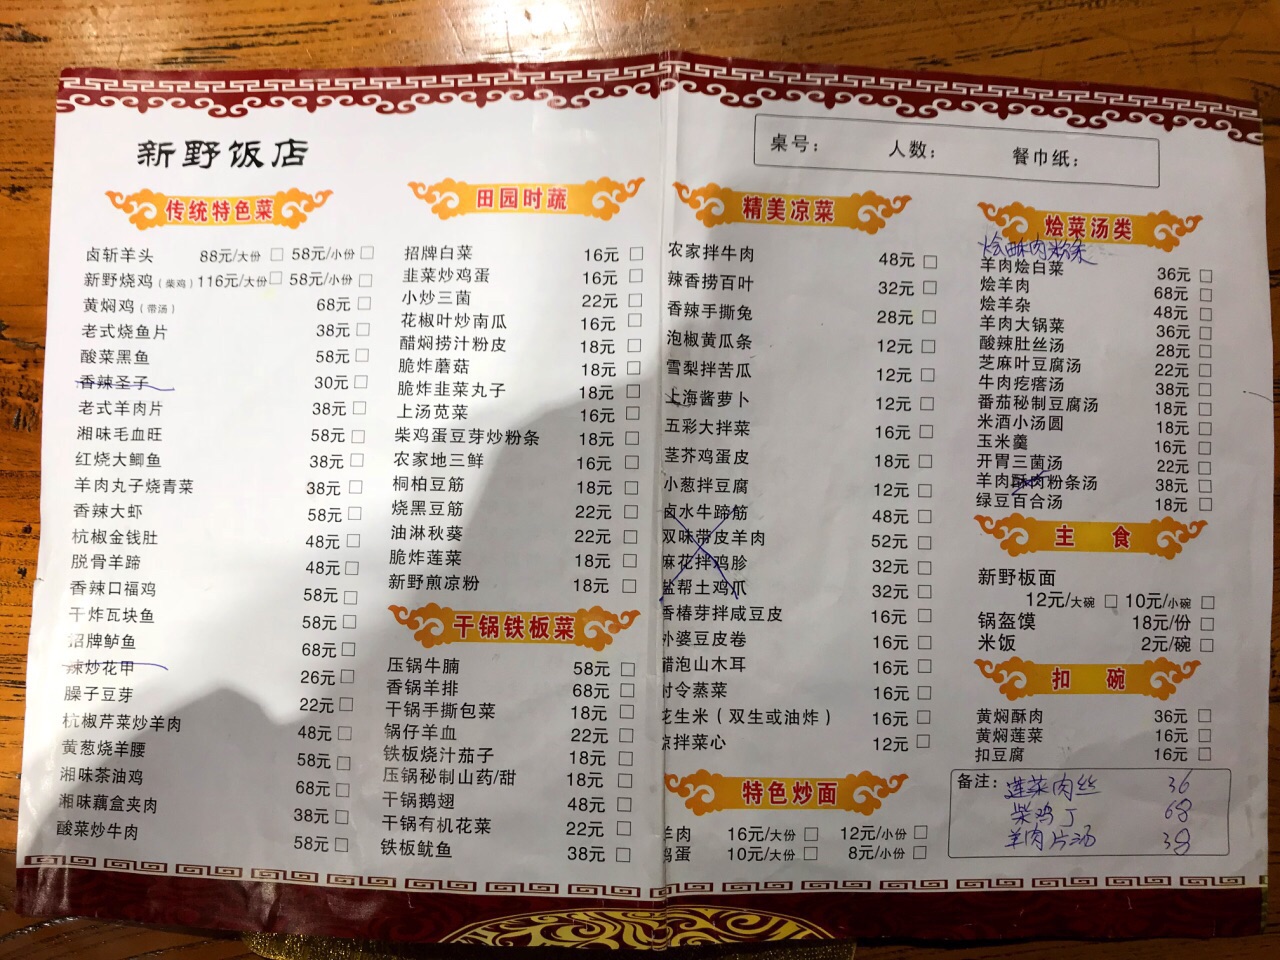 新野饭店
桌号：
人数：
餐巾纸：
传统特色菜
卤斩羊头 88元/大份 □ 58元/小份 □
新野烧鸡（柴鸡）116元/大份 □ 58元/小份 □
黄焖鸡（带汤） 68元 □
老式烧鱼片 38元 □
酸菜黑鱼 58元 □
香辣圣子 30元 □
老式羊肉片 38元 □
湘味毛血旺 58元 □
红烧大鲫鱼 38元 □
羊肉丸子烧青菜 38元 □
香辣大虾 58元 □
杭椒金钱肚 48元 □
脱骨羊蹄 48元 □
香辣口福鸡 58元 □
干炸瓦块鱼 58元 □
招牌鲈鱼 68元 □
辣炒花甲 26元 □
臊子豆芽 22元 □
杭椒芹菜炒羊肉 48元 □
黄葱烧羊腰 58元 □
湘味茶油鸡 68元 □
湘味藕盒夹肉 38元 □
酸菜炒牛肉 58元 □
田园时蔬
招牌白菜 16元 □
韭菜炒鸡蛋 16元 □
小炒三菌 22元 □
花椒叶炒南瓜 16元 □
醋焖捞汁粉皮 18元 □
脆炸蘑菇 18元 □
脆炸韭菜丸子 18元 □
上汤苋菜 16元 □
柴鸡蛋豆芽炒粉条 18元 □
农家地三鲜 16元 □
桐柏豆筋 18元 □
烧黑豆筋 22元 □
油淋秋葵 22元 □
脆炸莲菜 18元 □
新野煎凉粉 18元 □
干锅铁板菜
压锅牛腩 58元 □
香锅羊排 68元 □
干锅手撕包菜 18元 □
锅仔羊血 22元 □
铁板烧汁茄子 18元 □
压锅秘制山药/甜 18元 □
干锅鹅翅 48元 □
干锅有机花菜 22元 □
铁板鱿鱼 38元 □
精美凉菜
农家拌牛肉 48元 □
辣香捞百叶 32元 □
香辣手撕兔 28元 □
泡椒黄瓜条 12元 □
雪梨拌苦瓜 12元 □
上海酱萝卜 12元 □
五彩大拌菜 16元 □
荃芥鸡蛋皮 18元 □
小葱拌豆腐 12元 □
卤水牛蹄筋 48元 □
双味带皮羊肉 52元 □
麻花拌鸡胗 32元 □
盐帮土鸡爪 32元 □
香椿芽拌咸豆皮 16元 □
外婆豆皮卷 16元 □
醋泡山木耳 16元 □
时令蒸菜 16元 □
花生米（双生或油炸） 16元 □
凉拌菜心 12元 □
特色炒面
羊肉 16元/大份 □ 12元/小份 □
鸡蛋 10元/大份 □ 8元/小份 □
烩菜汤类
烩酥肉粉条
羊肉烩白菜 36元 □
烩羊肉 68元 □
烩羊杂 48元 □
羊肉大锅菜 36元 □
酸辣肚丝汤 28元 □
芝麻叶豆腐汤 22元 □
牛肉疙瘩汤 38元 □
番茄秘制豆腐汤 18元 □
米酒小汤圆 18元 □
玉米羹 16元 □
开胃三菌汤 22元 □
羊肉酥肉粉条汤 38元 □
绿豆百合汤 18元 □
主 食
新野板面
12元/大碗 □ 10元/小碗 □
锅盔馍 18元/份 □
米饭 2元/碗 □
扣 碗
黄焖酥肉 36元 □
黄焖莲菜 16元 □
扣豆腐 16元 □
备注：莲菜肉丝 36
柴鸡丁 68
羊肉片汤 38